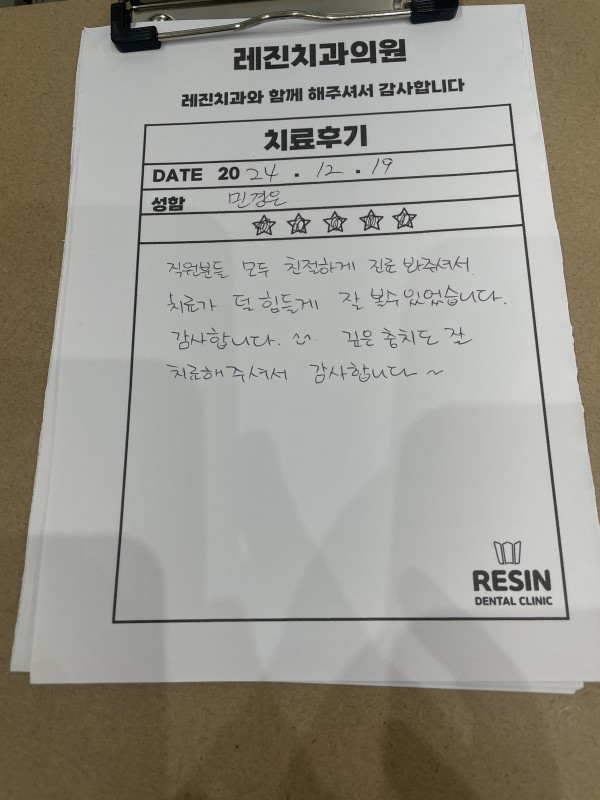 레진치과의원
레진치과와 함께 해주셔서 감사합니다
치료후기
DATE 2024.12.19
성함 민경은
직원분들 모두 친절하게 진료 봐주셔서
치료가 덜 힘들게 잘 볼수있었습니다.
감사합니다. ^^ 깊은 충치도 잘
치료해주셔서 감사합니다~
RESIN
DENTAL CLINIC